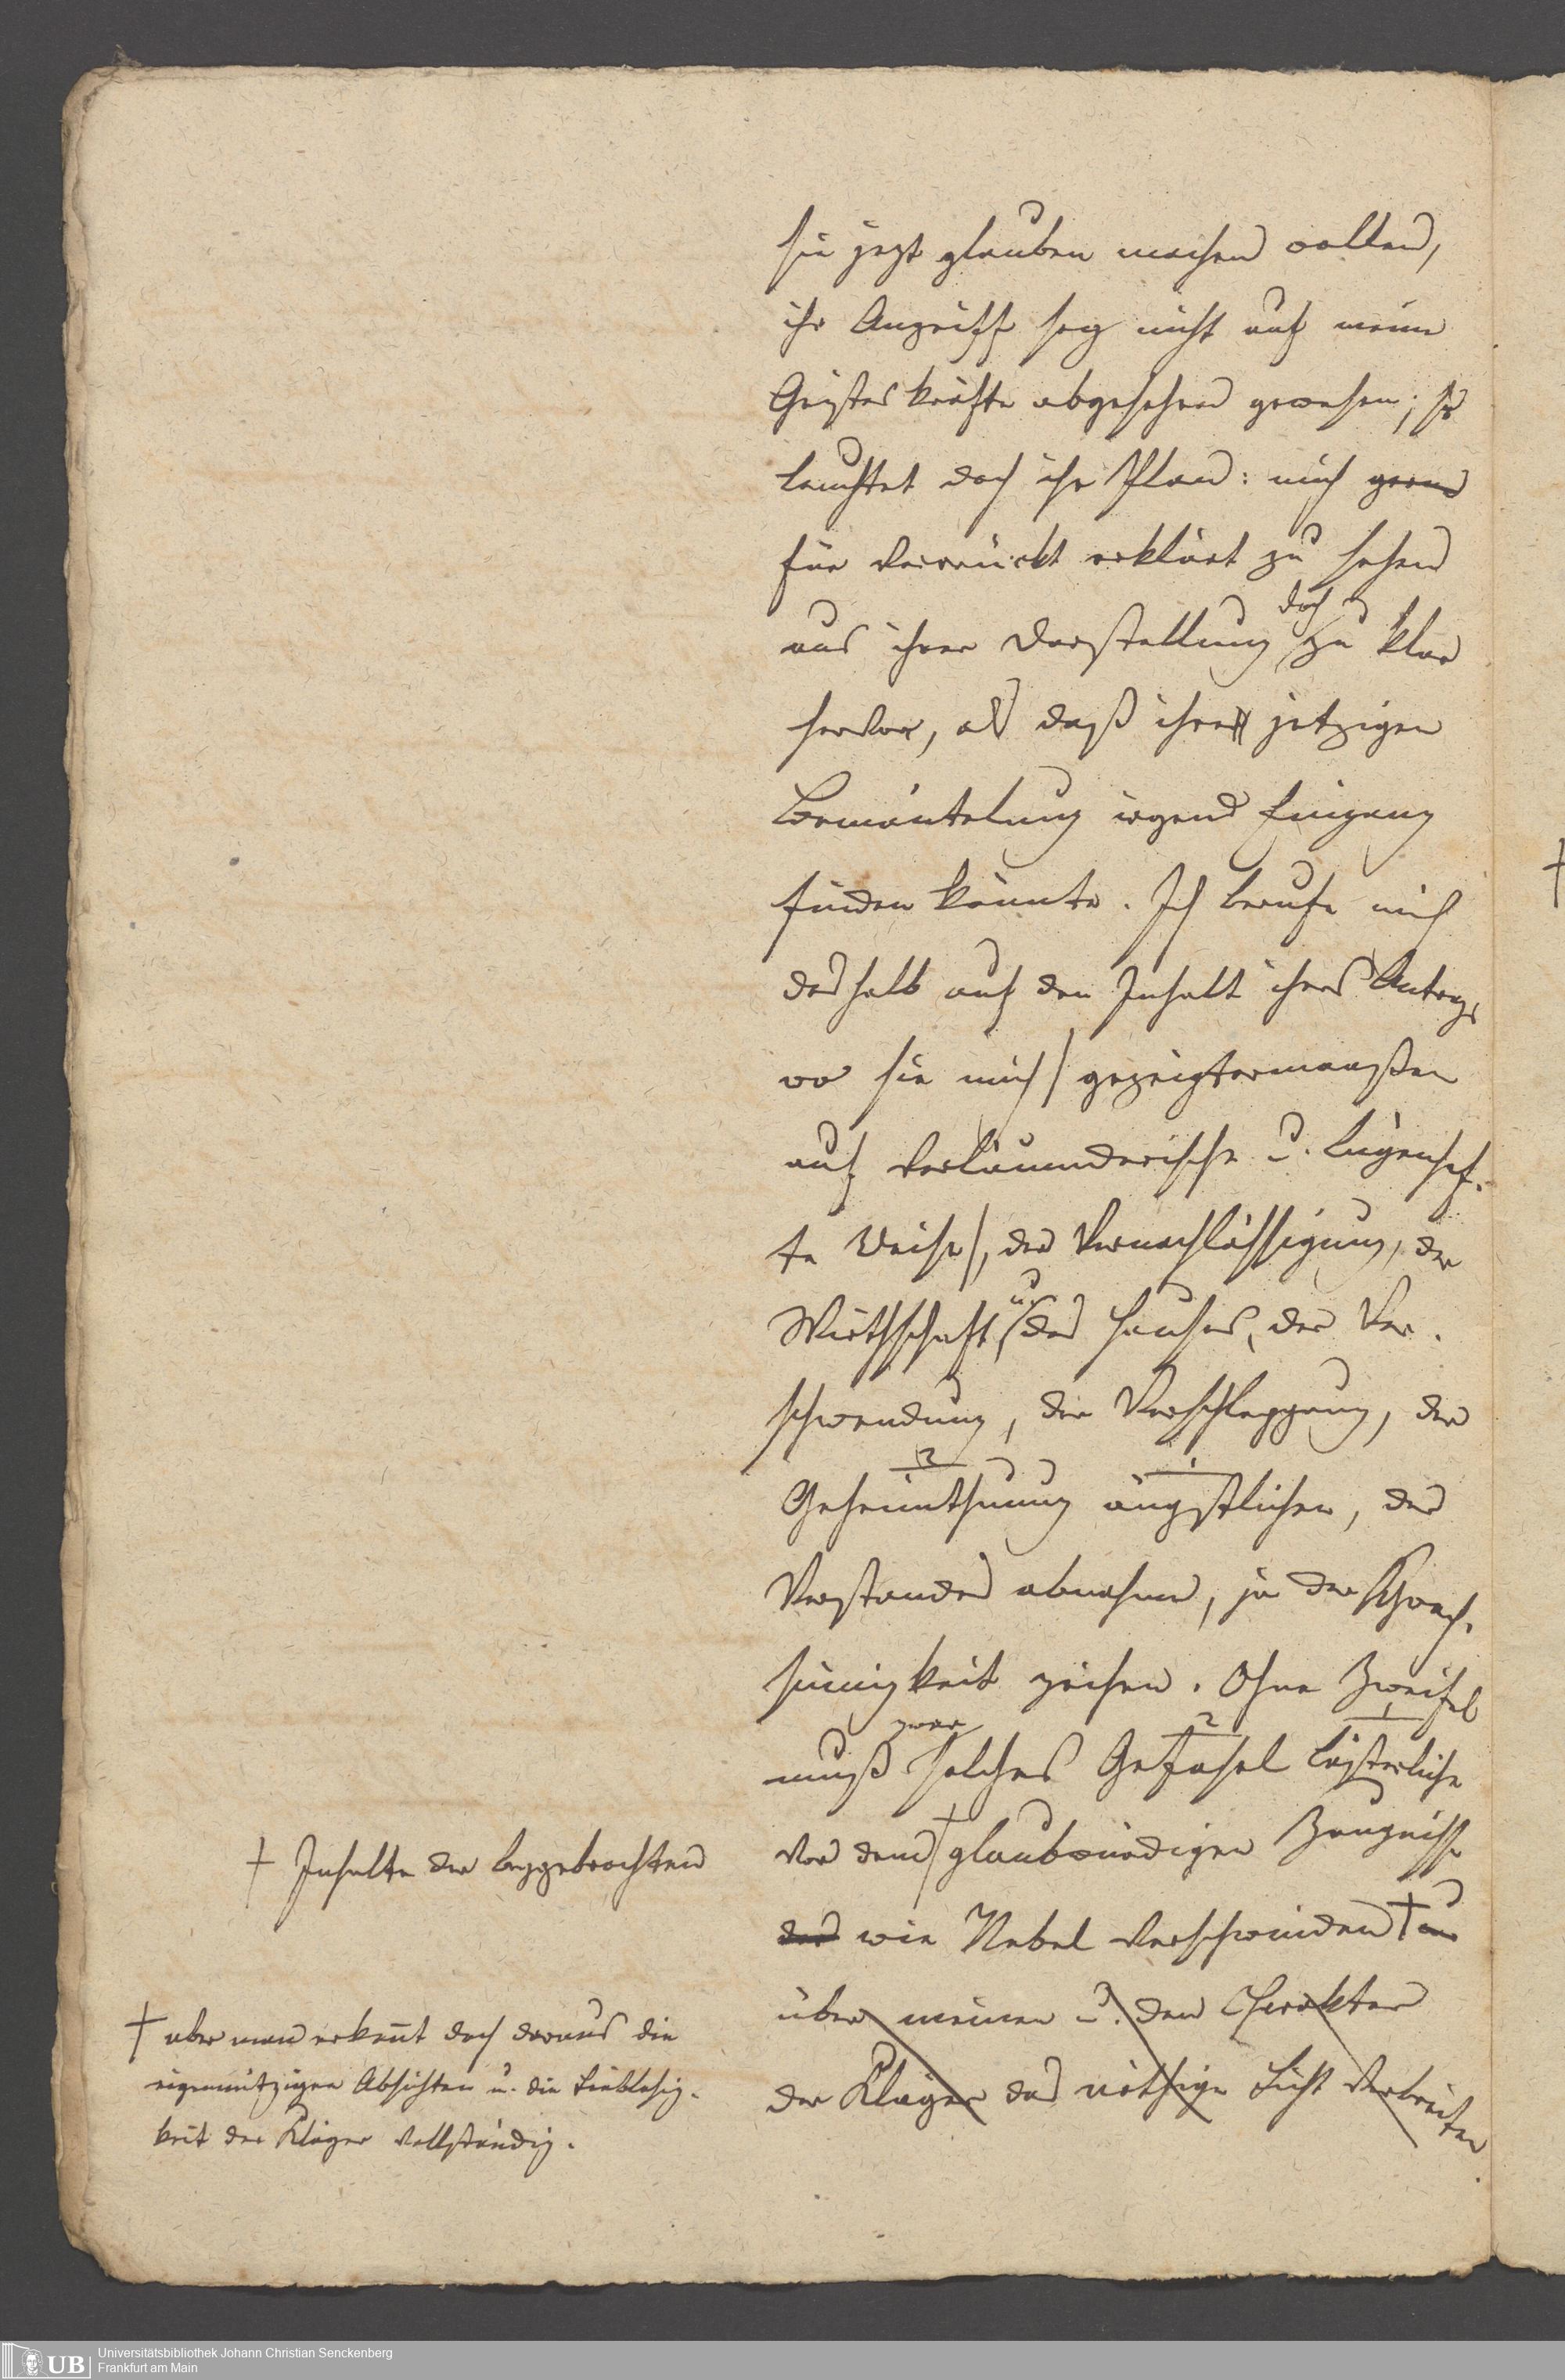 sie jezt glauben machen wollen,
ihr Angriff sey nicht auf meine
Geisteskräfte abgesehen gewesen; so
leuchtet doch ihr Plan: mich gern
für verrückt erklärt zu sehen
doch
aus ihrer Darstellung zu klar
hervor, als daß ihre jetzigen
Bemäntelung irgend Eingang
finden könnte. Ich berufe mich
deshalb auf den Inhalt ihres Antrags
wo sie mich / gezeigtermaaßen
auf verläumderische u. lügenhaf-
te Weise /, der Vernachlässigung, der
u.
Wirthschaft, des Hauses, der Ver-
schwendung, der Verschleppung, der
2 1
Geheimthuung ängstlichen, der
Verstandes abnahme, ja der Schwach-
sinnigkeit zeihen. Ohne Zweifel
zwar 2 1
muß solches Gefasel lästerliche
von dem † glaubwürdigen Zeugnisse
† Inhalte der beygebrachten
des wie Nebel verschwinden † u
über meinen u. den Charakter
der Kläger das nöthige Licht verbreiten
† aber man erkennt doch daraus die
eigennützigen Absichten u. die Lieblosig-
keit der Kläger vollständig.
UB
Universitätsbibliothek Johann Christian Senckenberg
Frankfurt am Main